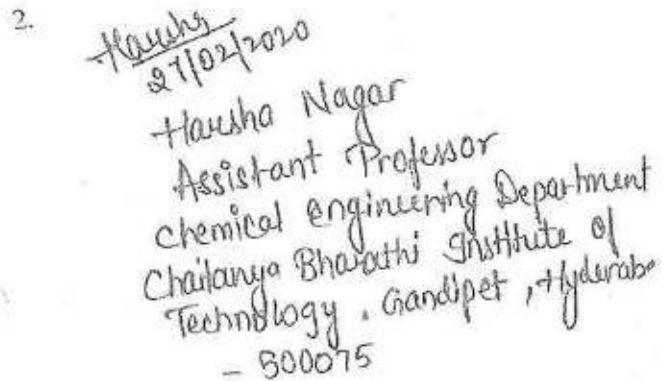 2.
Harsha
27/02/2020
Harsha Nagar
Assistant Professor
Chemical Engineering Department
Chaitanya Bharathi Institute of
Technology, Gandipet, Hyderaba
- 500075